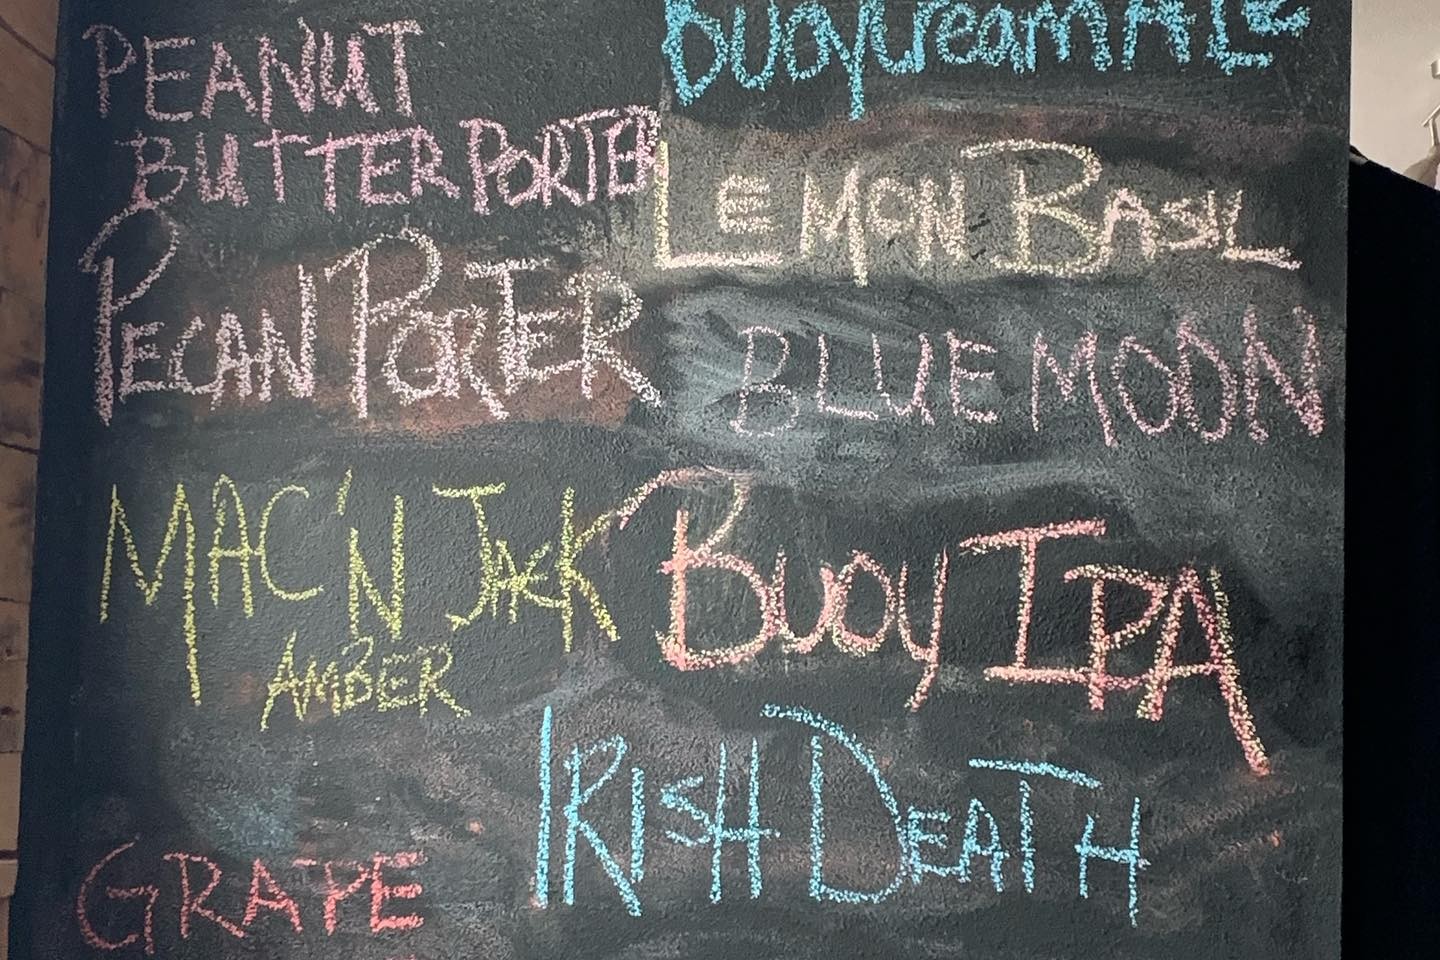 PEANUT
BUTTER PORTER
PECAN PORTER
MAC'N JACK
AMBER
GRAPE
Buoy Cream ALE
LEMON BASIL
BLUE MOON
BUOY IPA
IRISH DEATH